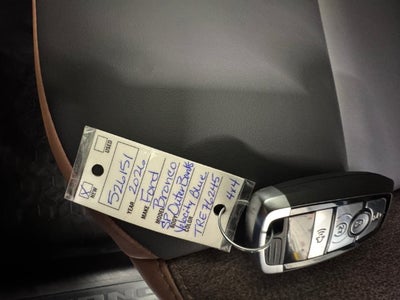 (X) NEW USED
526151
YEAR 2026
MAKE Ford
MODEL Bronco
Outer Banks
COLOR Velocity Blue
TRE76245
4x4